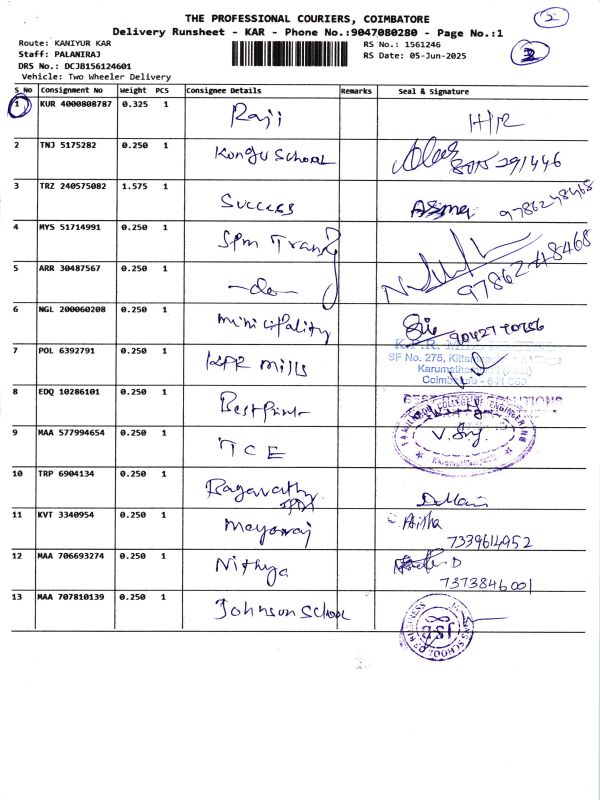 THE PROFESSIONAL COURIERS, COIMBATORE
Delivery Runsheet - KAR - Phone No.:9047080280 - Page No.:1
2
Route: KANIYUR KAR
RS No.: 1561246
Staff: PALANIRAJ
RS Date: 05-Jun-2025
DRS No.: DCJB156124601
Vehicle: Two Wheeler Delivery
S.No Consignment No Weight PCS Consignee Details Remarks Seal & Signature
1 KUR 4000808787 0.325 1 Raji H/R
2 TNJ 5175282 0.250 1 Kongu School
3 TRZ 240575082 1.575 1 Success Asma 9786248468
4 MYS 51714991 0.250 1 Spm
5 ARR 30487567 0.250 1 -do- 9786248468
6 NGL 200060208 0.250 1 Minicipality
7 POL 6392791 0.250 1 KPR Mills
SF No. 275,
8 EDQ 10286101 0.250 1
9 MAA 577994654 0.250 1 TCE
COLLEGE OF ENGINEERING
10 TRP 6904134 0.250 1
11 KVT 3340954 0.250 1 7339614952
12 MAA 706693274 0.250 1 Nithya D
7373846001
13 MAA 707810139 0.250 1 Johnson School
SCHOOL OF BUSINESS